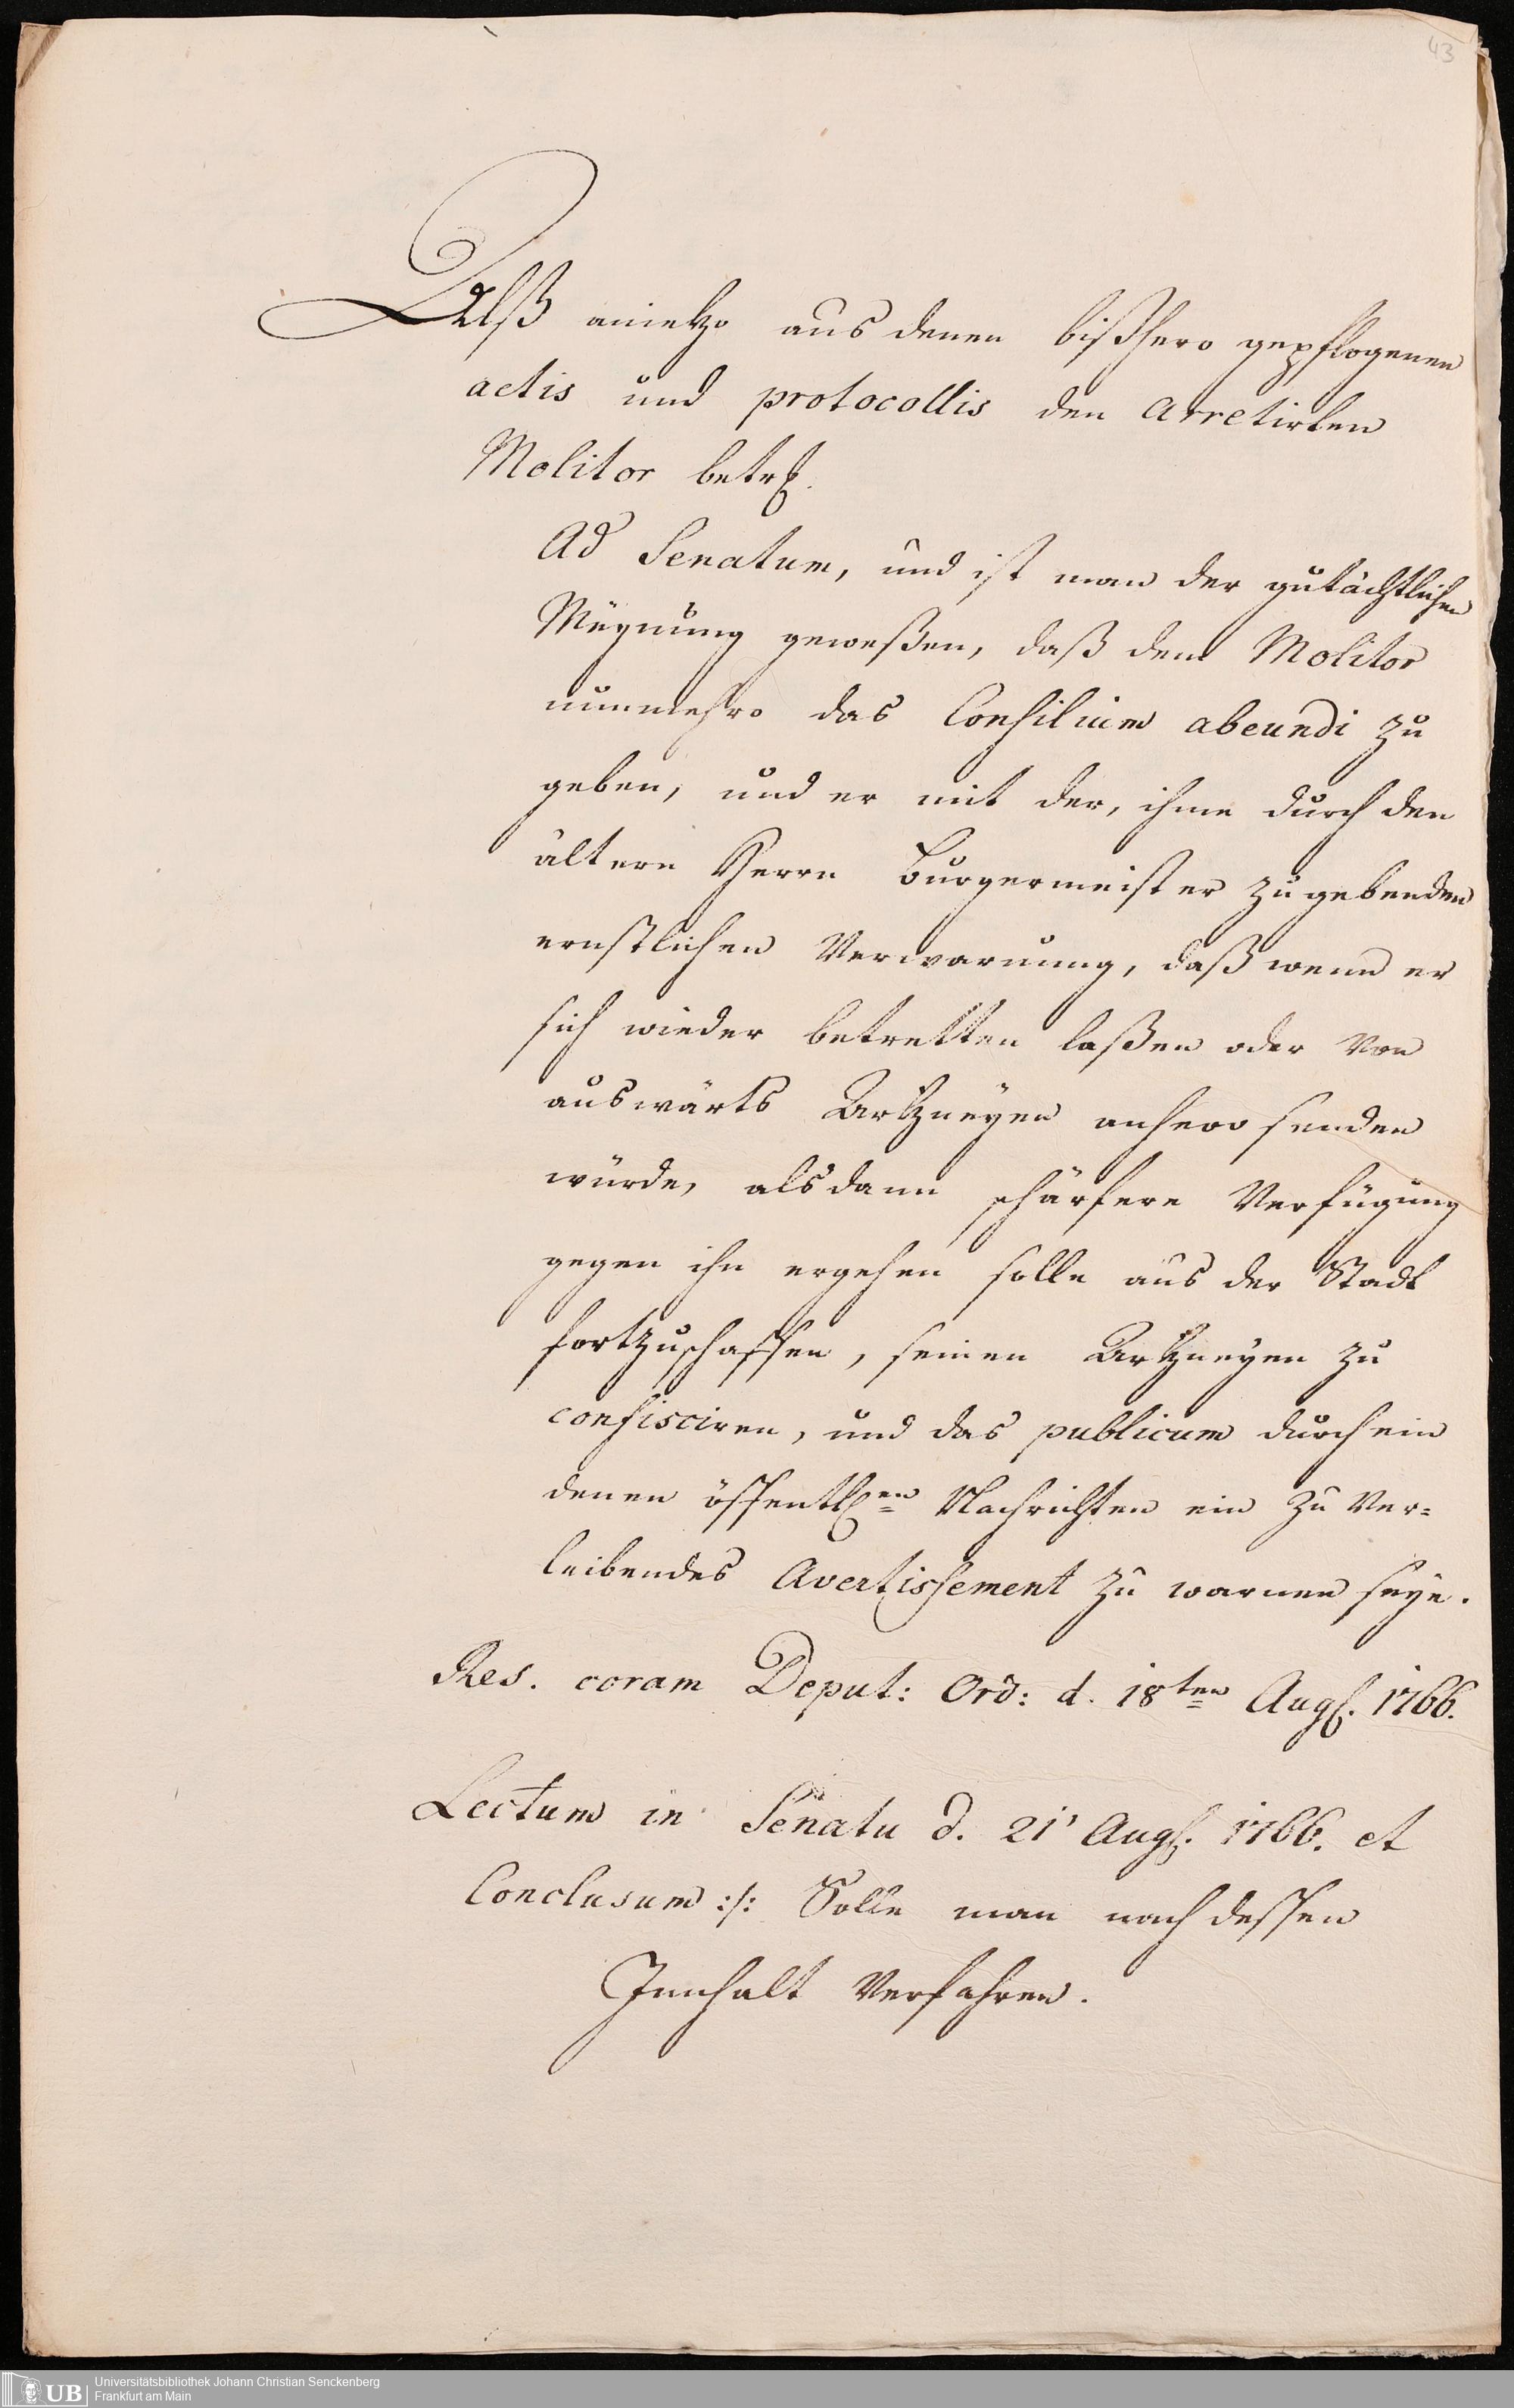 43
Alß anietzo aus denen bißhero gepflogenen
actis und protocollis den Arretirten
Molitor betrf.
Ad Senatum, und ist man der gutächtlichen
Meynung geweßen, daß dem Molitor
nunmehro das Consilium abeundi zu
geben, und er mit der, ihme durch den
ältern Herrn Burgermeister zu gebenden
ernstlichen Verwarnung, daß wenn er
sich wieder betretten laßen oder von
auswärts Artzneyen anhero senden
würde, alsdann schärfere Verfügung
gegen ihn ergehen solle aus der Stadt
fortzuschaffen, seinen Artzneyen zu
confisciren, und das publicum durch ein
denen öffentl.en Nachrichten ein zu ver=
leibendes Avertissement zu warnen seye.
Res. coram Deput: Ord: d. 18ten Aug. 1766.
Lectum in Senatu d. 21' Aug. 1766. et
Conclusum :/: Solle man nach dessen
Innhalt verfahren.
UB Universitätsbibliothek Johann Christian Senckenberg
Frankfurt am Main